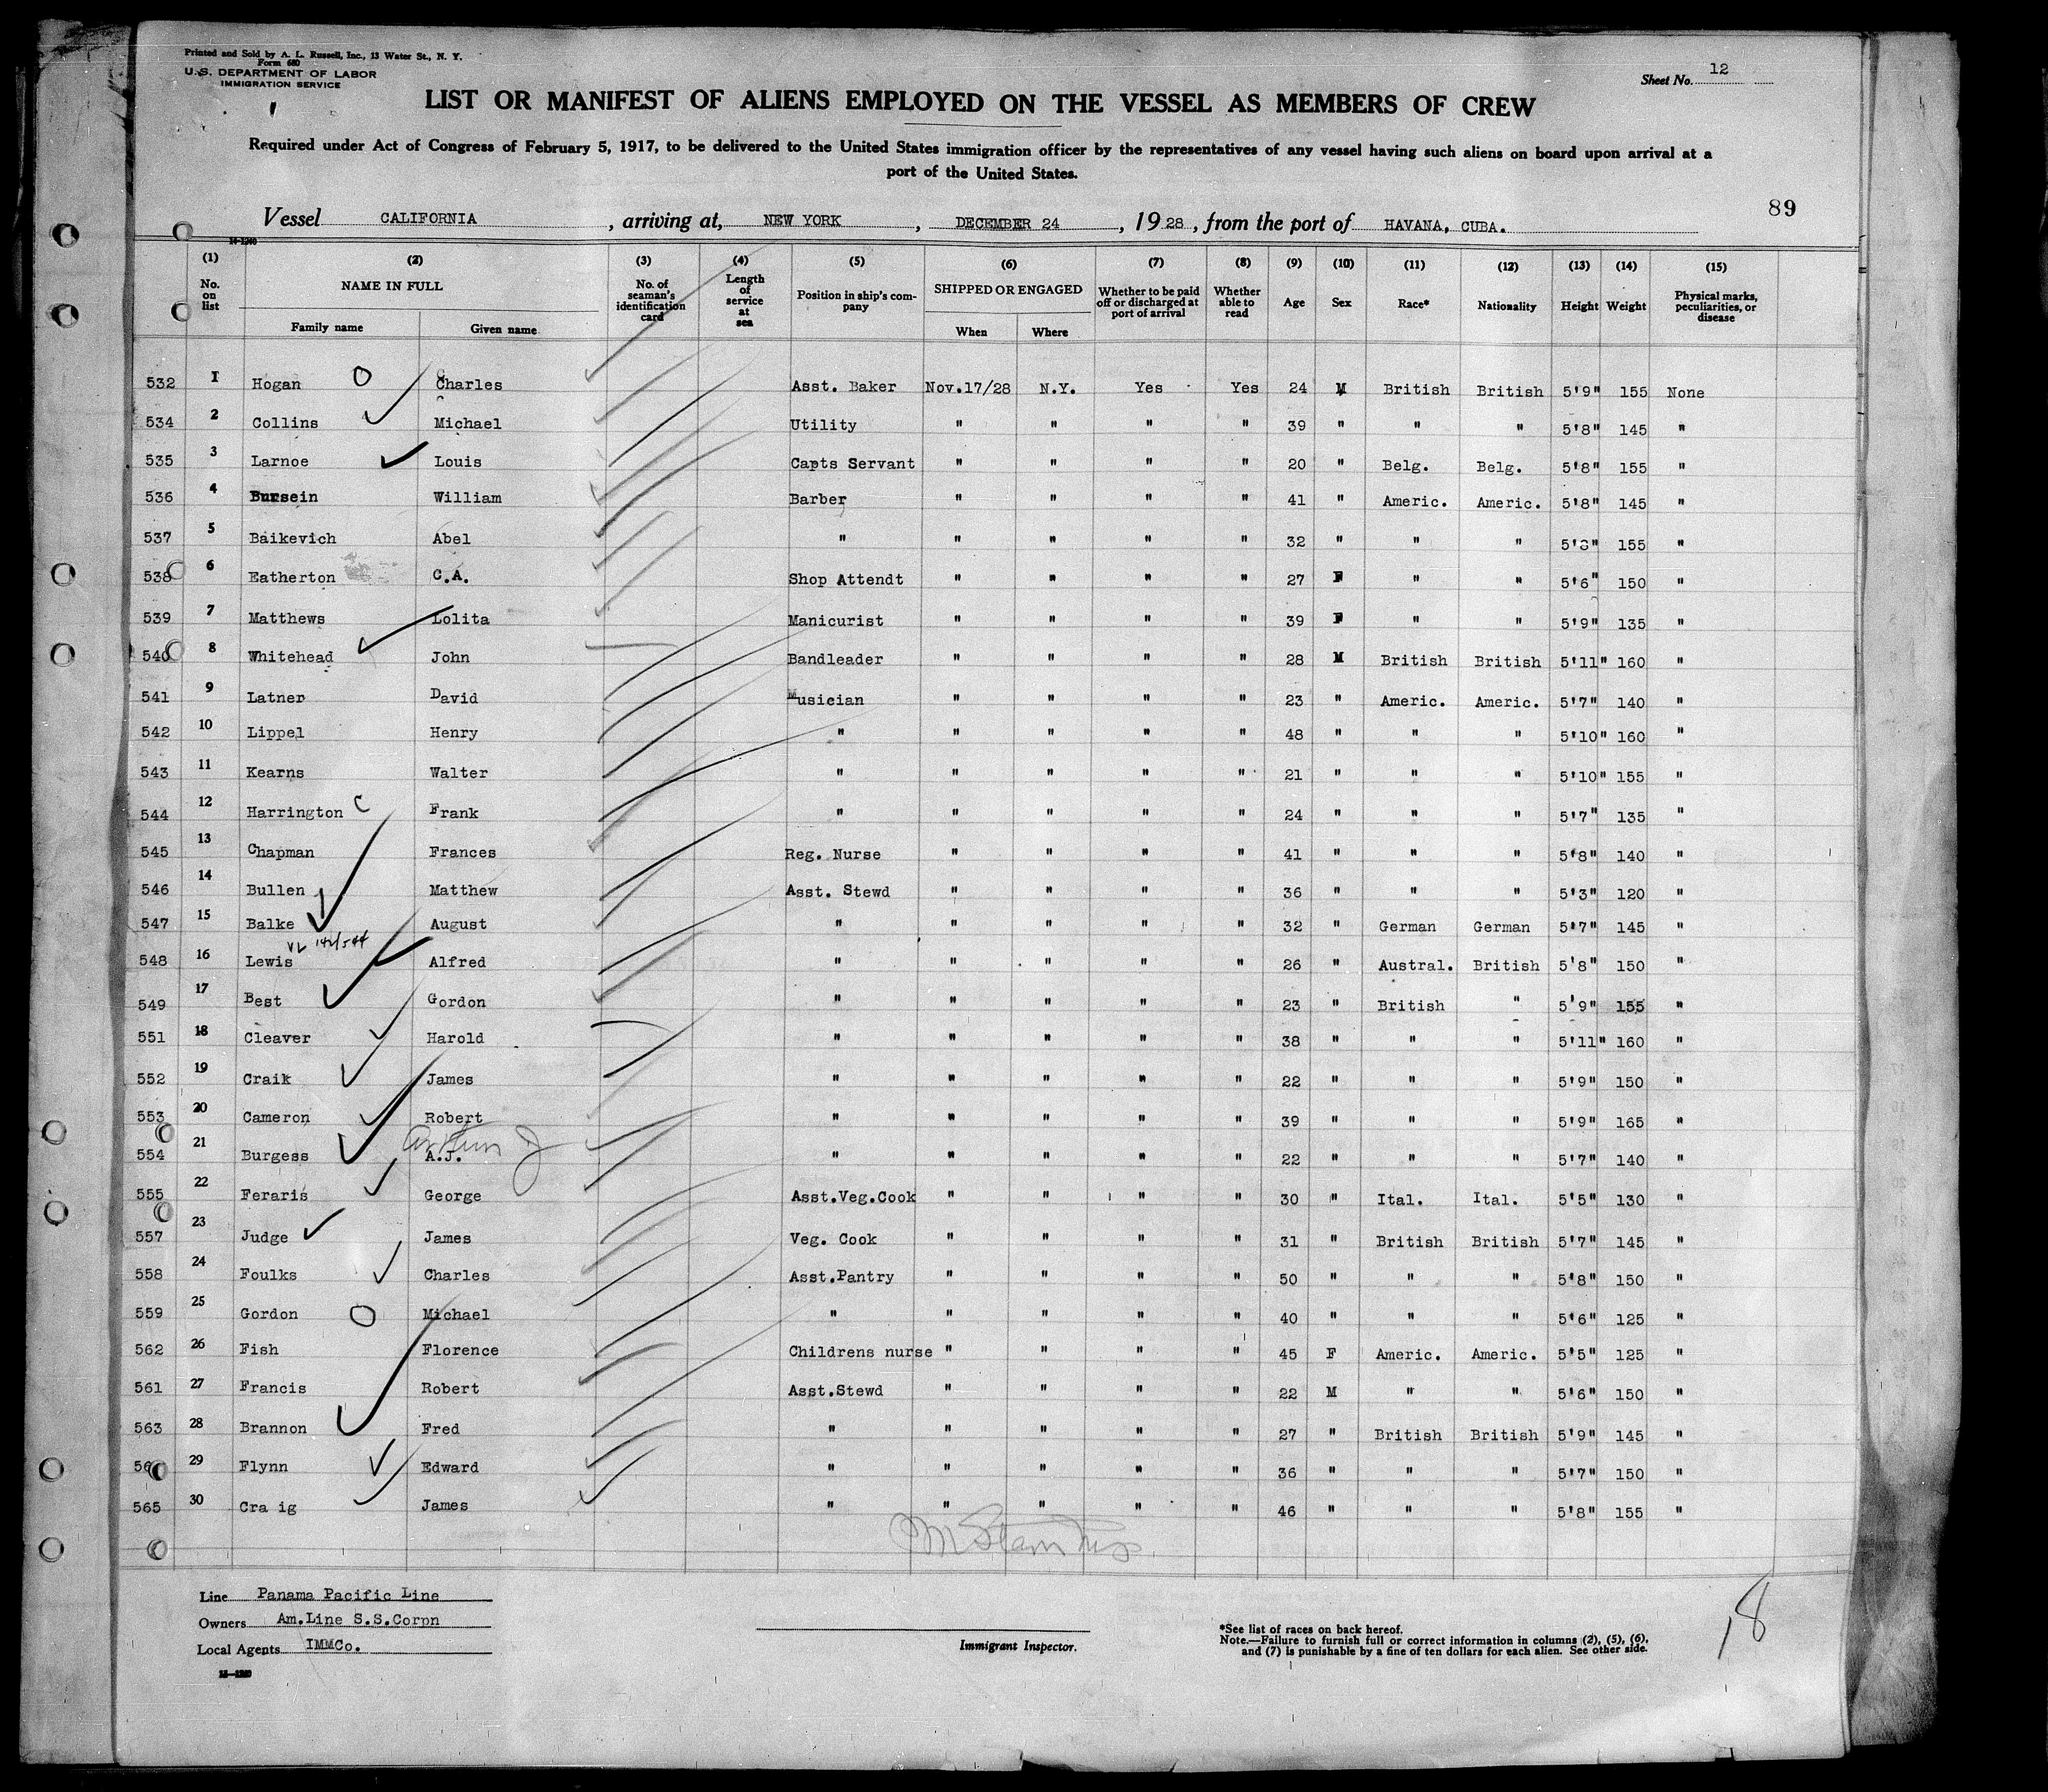 Printed and Sold by A. L. Russell, Inc., 13 Water St., N. Y.
Form 680
U.S. DEPARTMENT OF LABOR
IMMIGRATION SERVICE
Sheet No. 12
LIST OR MANIFEST OF ALIENS EMPLOYED ON THE VESSEL AS MEMBERS OF CREW
Required under Act of Congress of February 5, 1917, to be delivered to the United States immigration officer by the representatives of any vessel having such aliens on board upon arrival at a
port of the United States.
89
Vessel CALIFORNIA, arriving at, NEW YORK, DECEMBER 24, 1928, from the port of HAVANA, CUBA.
14-1240
(1) (2) (3) (4) (5) (6) (7) (8) (9) (10) (11) (12) (13) (14) (15)
No. on list NAME IN FULL Family name Given name No. of seaman's identification card Length of service at sea Position in ship's company SHIPPED OR ENGAGED When Where Whether to be paid off or discharged at port of arrival Whether able to read Age Sex Race* Nationality Height Weight Physical marks, peculiarities, or disease
532 1 Hogan O Charles Asst. Baker Nov.17/28 N.Y. Yes Yes 24 M British British 5'9" 155 None
534 2 Collins Michael Utility " " " " 39 " " " 5'8" 145 "
535 3 Larnoe Louis Capts Servant " " " " 20 " Belg. Belg. 5'8" 155 "
536 4 Bursein William Barber " " " " 41 " Americ. Americ. 5'8" 145 "
537 5 Baikevich Abel " " " " " 32 " " " 5'8" 155 "
538 6 Eatherton C.A. Shop Attendt " " " " 27 F " " 5'6" 150 "
539 7 Matthews Lolita Manicurist " " " " 39 F " " 5'9" 135 "
540 8 Whitehead John Bandleader " " " " 28 M British British 5'11" 160 "
541 9 Latner David Musician " " " " 23 " Americ. Americ. 5'7" 140 "
542 10 Lippel Henry " " " " " 48 " " " 5'10" 160 "
543 11 Kearns Walter " " " " " 21 " " " 5'10" 155 "
544 12 Harrington C Frank " " " " " 24 " " " 5'7" 135 "
545 13 Chapman Frances Reg. Nurse " " " " 41 " " " 5'8" 140 "
546 14 Bullen Matthew Asst. Stewd " " " " 36 " " " 5'3" 120 "
547 15 Balke August " " " " " 32 " German German 5'7" 145 "
548 16 Lewis Alfred " " " " " 26 " Austral. British 5'8" 150 "
549 17 Best Gordon " " " " " 23 " British " 5'9" 155 "
551 18 Cleaver Harold " " " " " 38 " " " 5'11" 160 "
552 19 Craik James " " " " " 22 " " " 5'9" 150 "
553 20 Cameron Robert " " " " " 39 " " " 5'9" 165 "
Arthur J
554 21 Burgess A.J. " " " " " 22 " " " 5'7" 140 "
555 22 Feraris George Asst.Veg.Cook " " " " 30 " Ital. Ital. 5'5" 130 "
557 23 Judge James Veg. Cook " " " " 31 " British British 5'7" 145 "
558 24 Foulks Charles Asst.Pantry " " " " 50 " " " 5'8" 150 "
559 25 Gordon O Michael " " " " " 40 " " " 5'6" 125 "
562 26 Fish Florence Childrens nurse " " " " 45 F Americ. Americ. 5'5" 125 "
561 27 Francis Robert Asst.Stewd " " " " 22 M " " 5'6" 150 "
563 28 Brannon Fred " " " " " 27 " British British 5'9" 145 "
29 Flynn Edward " " " " " 36 " " " 5'7" 150 "
565 30 Cra ig James " " " " " 46 " " " 5'8" 155 "
Line Panama Pacific Line
Owners Am.Line S.S.Corpn
Local Agents IMMCo.
Immigrant Inspector.
*See list of races on back hereof.
Note.—Failure to furnish full or correct information in columns (2), (5), (6),
and (7) is punishable by a fine of ten dollars for each alien. See other side.
18